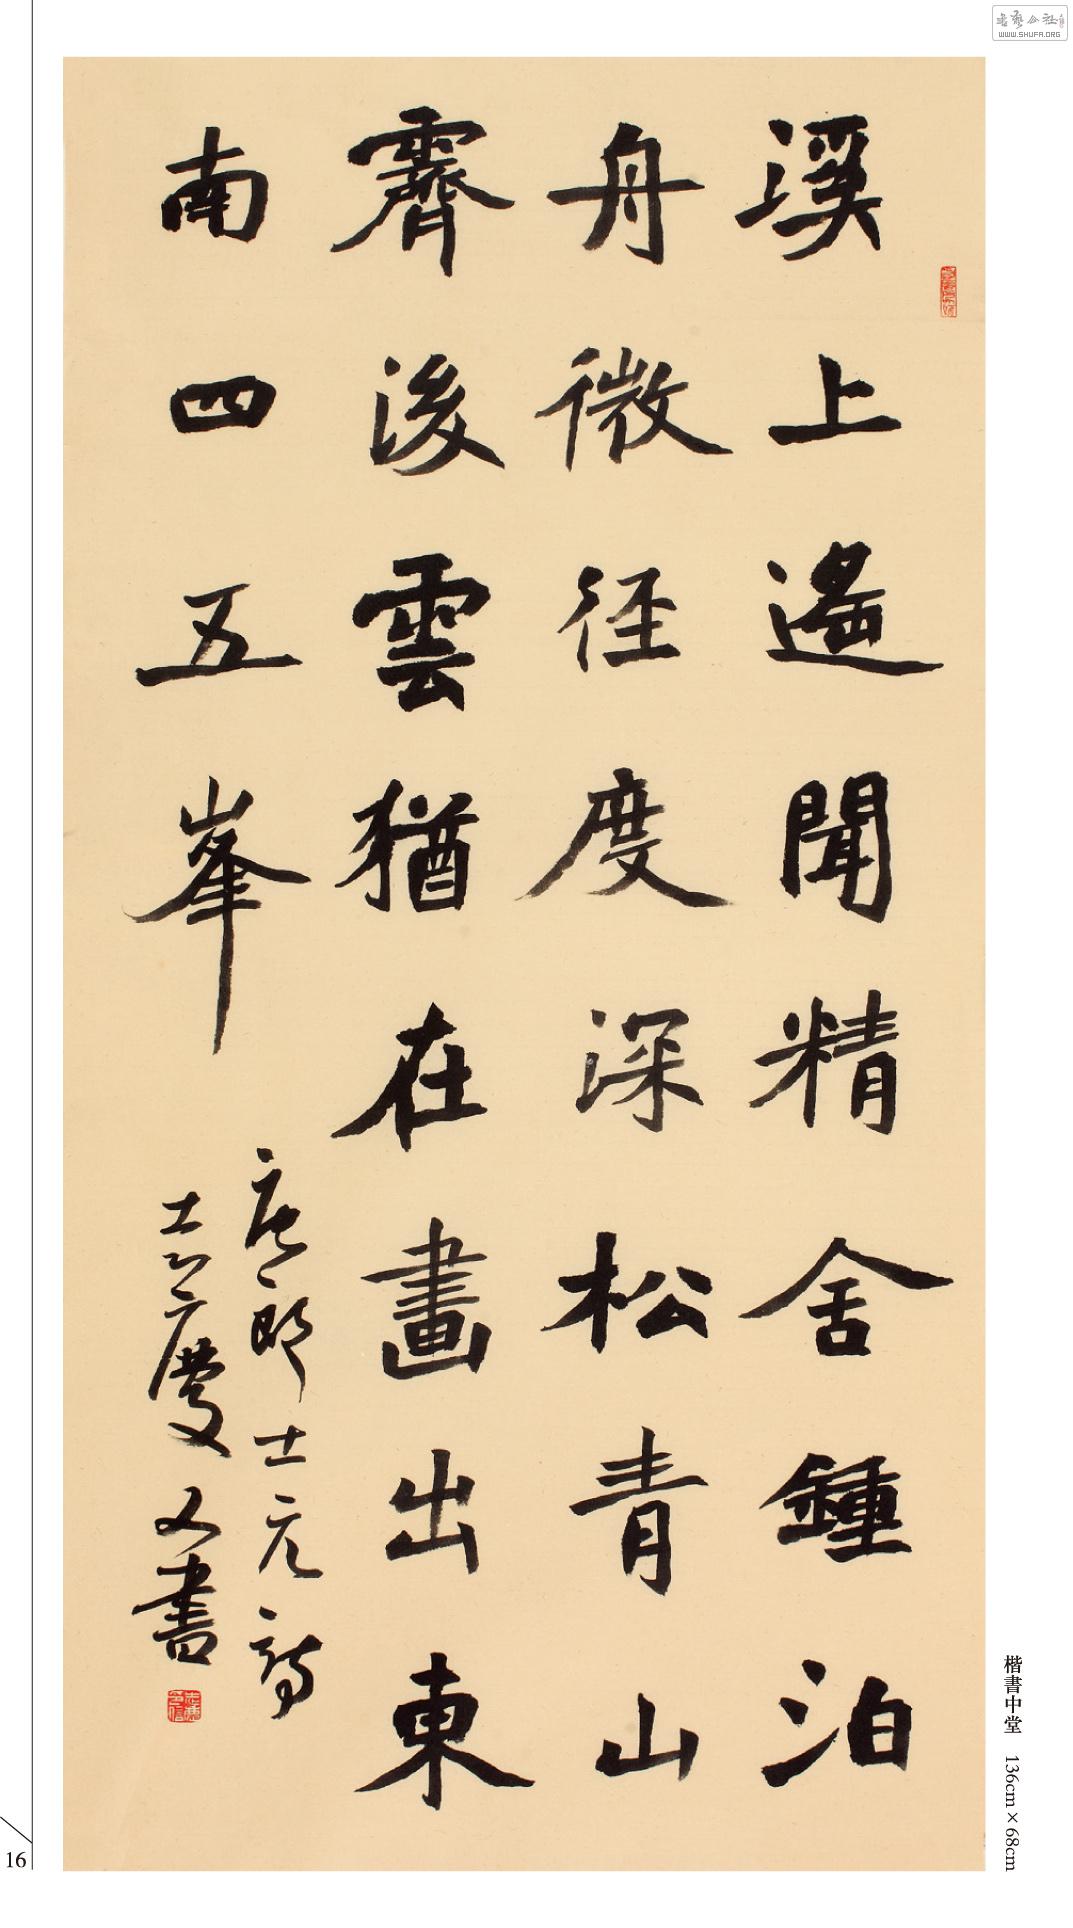 溪上遙聞精舍鍾泊
舟微徑度深松青山
霽後雲猶在畫出東
南四五峯
唐郎士元詩
志慶又書
楷書中堂 136cm×68cm
16
WWW.SHUFA.ORG